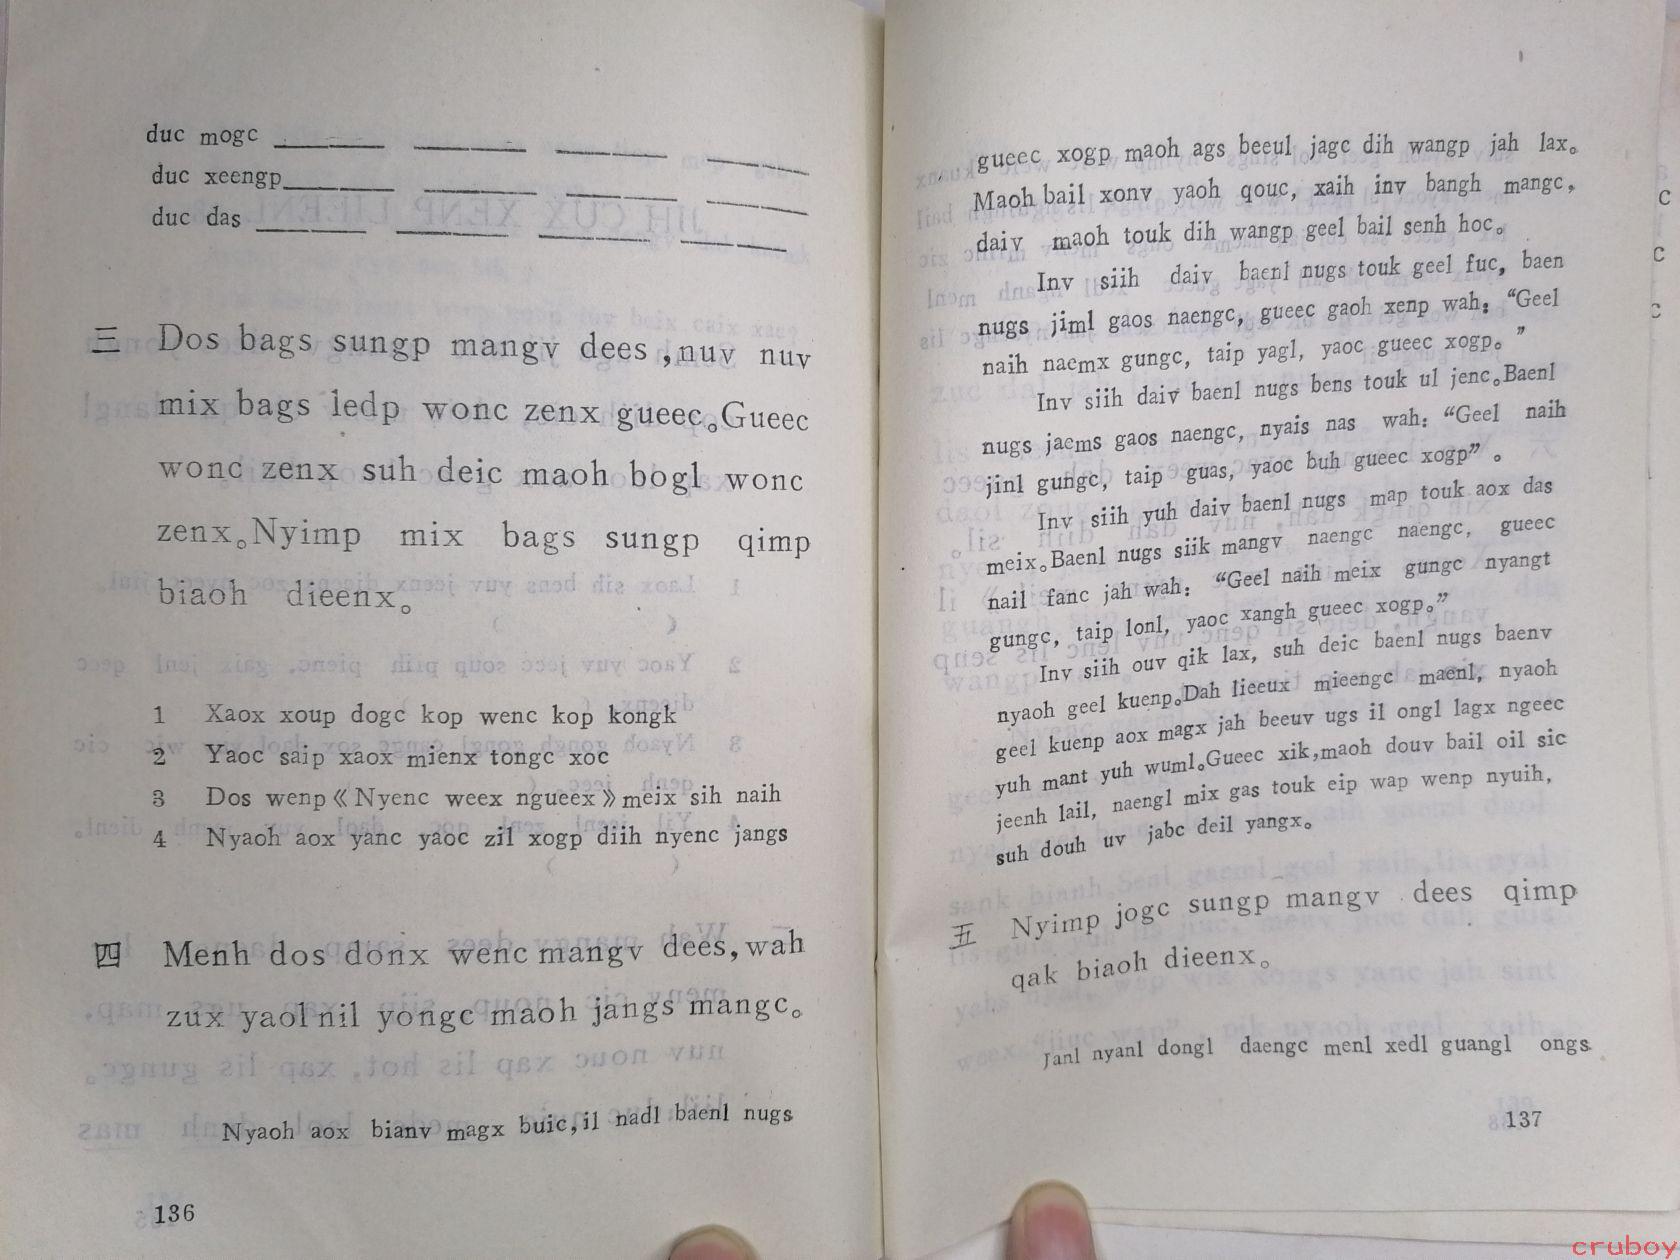 duc mogc
duc xeengp
duc das
三 Dos bags sungp mangv dees,nuv nuv
mix bags ledp wonc zenx gueec。Gueec
wonc zenx suh deic maoh bogl wonc
zenx。Nyimp mix bags sungp qimp
biaoh dieenx。
1 Xaox xoup dogc kop wenc kop kongk
2 Yaoc saip xaox mienx tongc xoc
3 Dos wenp《Nyenc weex ngueex》meix sih naih
4 Nyaoh aox yanc yaoc zil xogp diih nyenc jangs
四 Menh dos donx wenc mangv dees,wah
zux yaol nil yongc maoh jangs mangc。
Nyaoh aox bianv magx buic,il nadl baenl nugs
136
gueec xogp maoh ags beeul jagc dih wangp jah lax。
Maoh bail xonv yaoh qouc, xaih inv bangh mangc,
daiv maoh touk dih wangp geel bail senh hoc。
Inv siih daiv baenl nugs touk geel fuc, baen
nugs jiml gaos naengc, gueec gaoh xenp wah: “Geel
naih naemx gungc, taip yagl, yaoc gueec xogp。”
Inv siih daiv baenl nugs bens touk ul jenc。Baenl
nugs jaems gaos naengc, nyais nas wah: “Geel naih
jinl gungc, taip guas, yaoc buh gueec xogp”。
Inv siih yuh daiv baenl nugs map touk aox das
meix。Baenl nugs siik mangv naengc naengc, gueec
nail fanc jah wah: “Geel naih meix gungc nyangt
gungc, taip lonl, yaoc xangh gueec xogp。”
Inv siih ouv qik lax, suh deic baenl nugs baenv
nyaoh geel kuenp。Dah lieeux mieengc maenl, nyaoh
geel kuenp aox magx jah beeuv ugs il ongl lagx ngeec
yuh mant yuh wuml。Gueec xik,maoh douv bail oil sic
jeenh lail, naengl mix gas touk eip wap wenp nyuih,
suh douh uv jabc deil yangx。
五 Nyimp jogc sungp mangv dees qimp
qak biaoh dieenx。
Janl nyanl dongl daengc menl xedl guangl ongs
137
cruboy